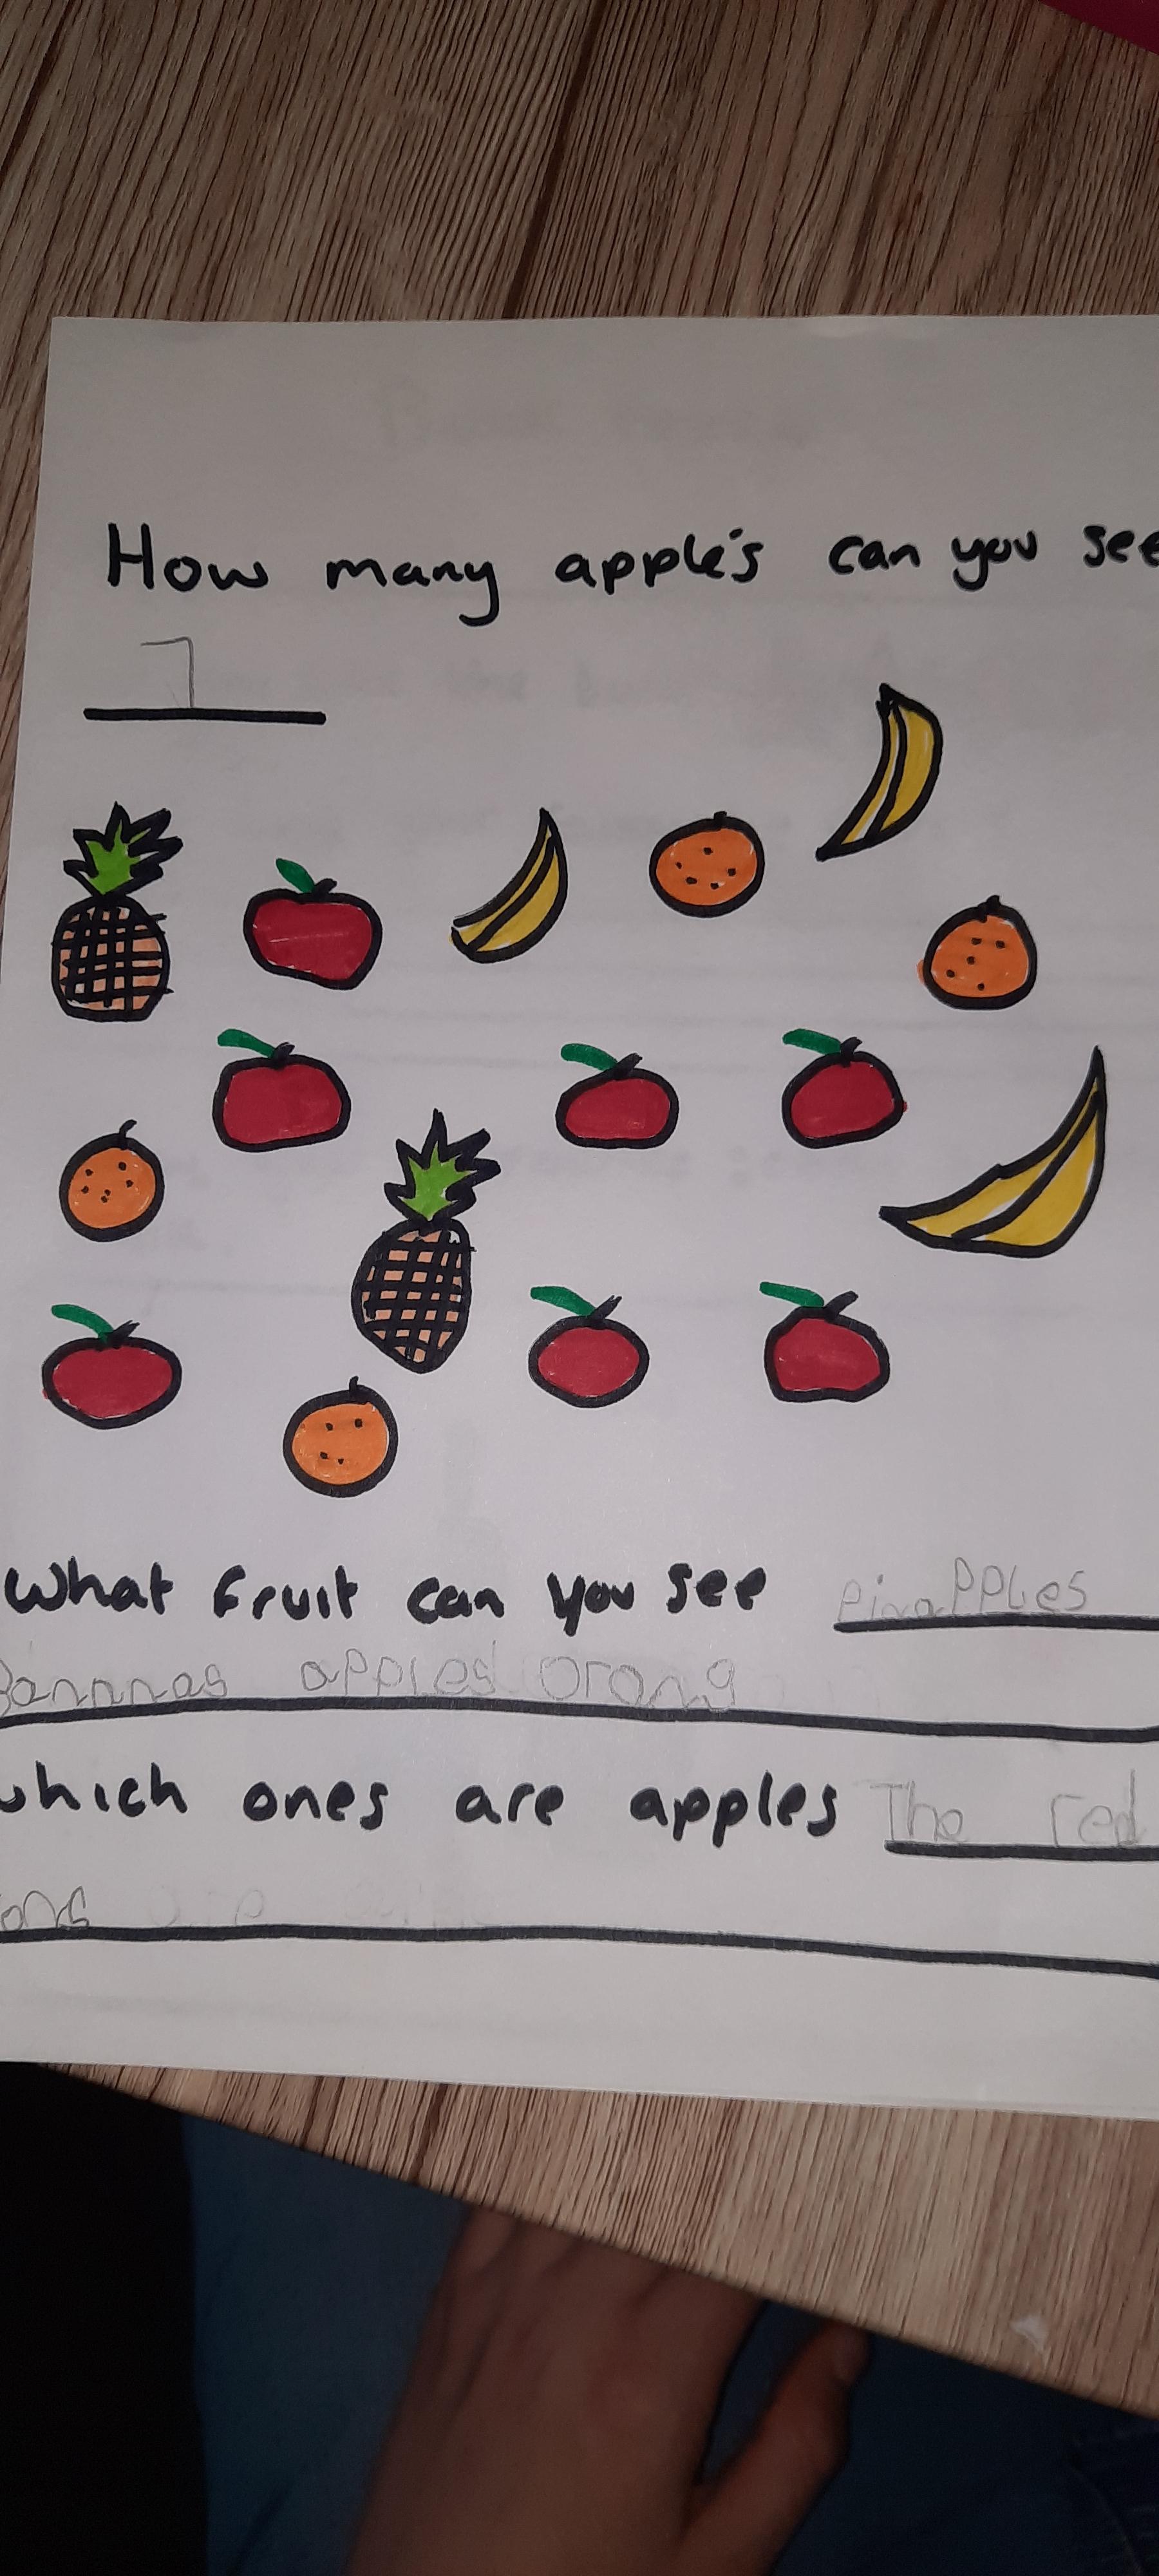 How many apple's can you see
7
What fruit can you see pinapples
Bannnas apples orang
which ones are apples The red
ons